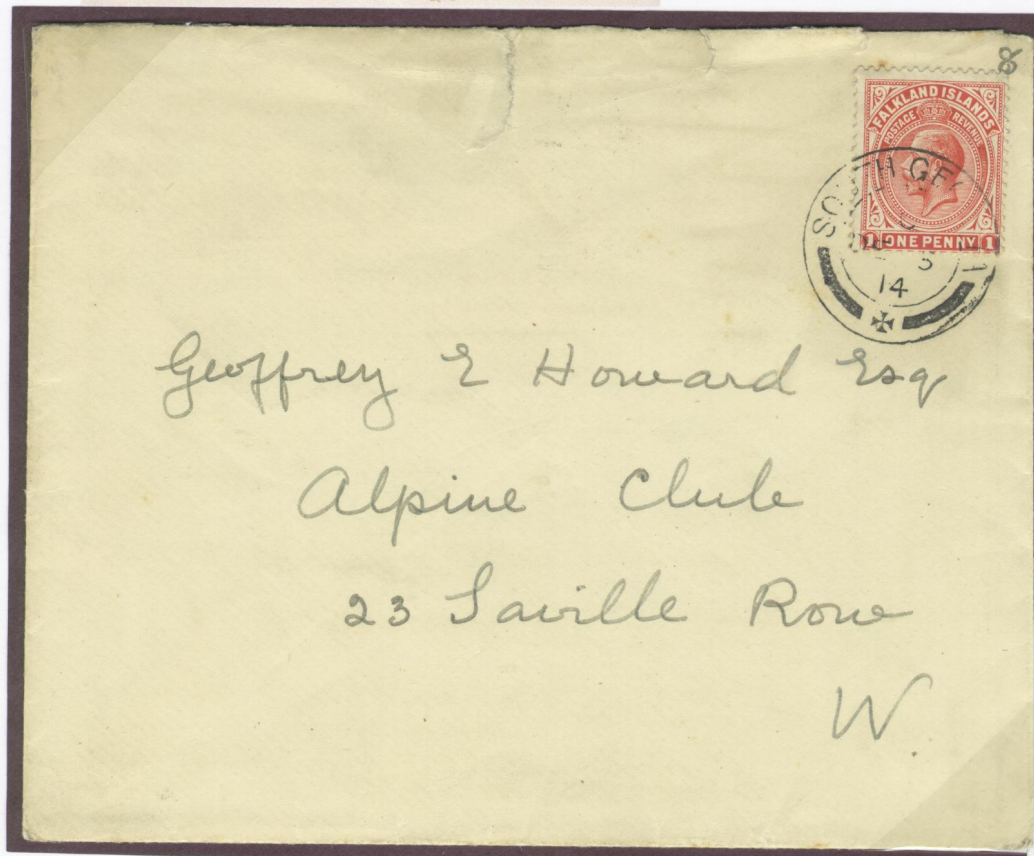 8
FALKLAND ISLANDS
POSTAGE REVENUE
1 ONE PENNY 1
SOUTH GEORGIA
14
Geoffrey E Howard Esq
Alpine Club
23 Saville Row
W.